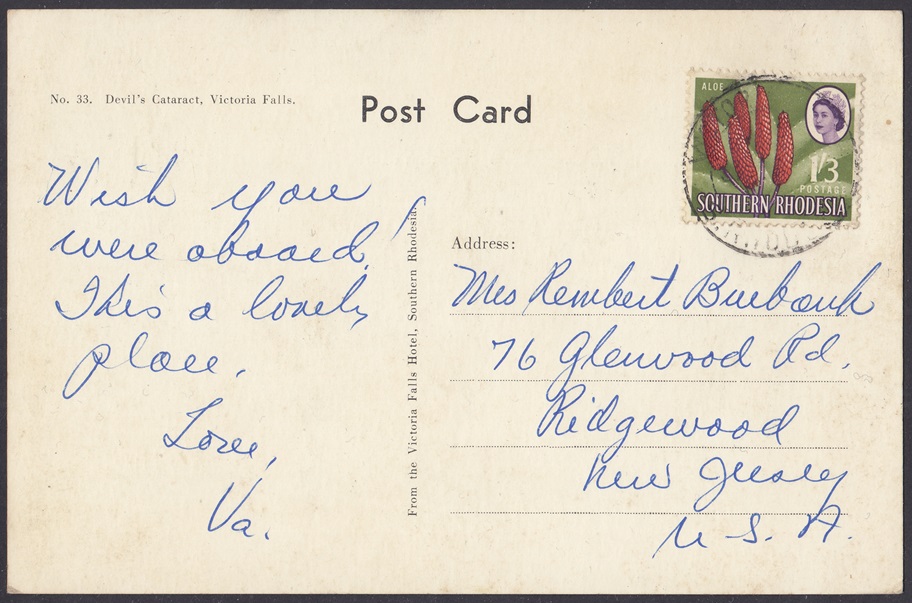 No. 33. Devil's Cataract, Victoria Falls.
Post Card
ALOE
1'3
POSTAGE
SOUTHERN RHODESIA
Wish you
were aboard!
This a lovely
place.
Love,
Va.
From the Victoria Falls Hotel, Southern Rhodesia.
Address:
Mrs Rembert Burbank
76 Glenwood Rd.
Ridgewood
New Jersey
U. S. A.